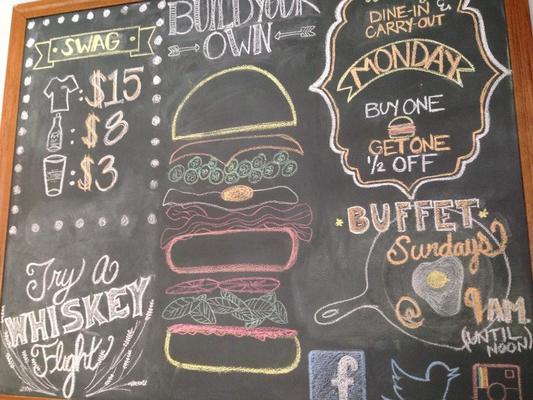 SWAG
: $15
: $8
: $3
Try A
WHISKEY
Flight
BUILD YOUR
OWN
DINE-IN &
CARRY-OUT
MONDAY
BUY ONE
GET ONE
1/2 OFF
BUFFET
Sundays
@ 9 AM.
(UNTIL
NOON)
f